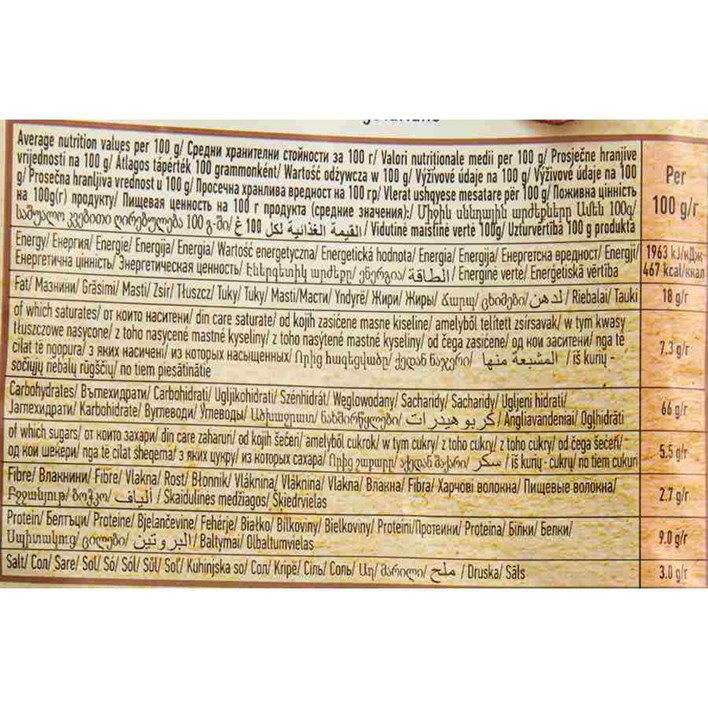 Average nutrition values per 100 g/ Средни хранителни стойности за 100 г/ Valori nutriționale medii per 100 g/ Prosječne hranjive
vrijednosti na 100 g/ Átlagos tápérték 100 grammonként/ Wartość odżywcza w 100 g/ Výživové údaje na 100 g/ Výživové údaje na 100
g/ Prosečna hranljiva vrednost u 100 g/ Просечна хранлива вредност на 100 гр/ Vlerat ushqyese mesatare për 100 g/ Поживна цінність
на 100g(г) продукту/ Пищевая ценность на 100 г продукта (средние значения):/ Միջին սննդային արժեքները Ամեն 100g/
საშუალო კვებითი ღირებულება 100 გ-ში/ القيمة الغذائية لكل 100 غ / Vidutinė maistinė vertė 100g/ Uzturvērtība 100 g produkta
Per
100 g/г
Energy/ Енергия/ Energie/ Energija/ Energia/ Wartość energetyczna/ Energetická hodnota/ Energia/ Energija/ Енергетска вредност/ Energji/
Енергетична цінність/ Энергетическая ценность/ Էներգետիկ արժեքը/ ენერგია/ الطاقة / Energinė vertė/ Enerģētiskā vērtība
1963 kJ/кДж
467 kcal/ккал
Fat/ Мазнини/ Grăsimi/ Masti/ Zsír/ Tłuszcz/ Tuky/ Tuky/ Masti/Масти/ Yndyrë/ Жири/ Жиры/ Ճարպ/ ცხიმები/ لدهن / Riebalai/ Tauki
18 g/г
of which saturates/ от които наситени/ din care saturate/ od kojih zasićene masne kiseline/ amelyből telített zsírsavak/ w tym kwasy
tłuszczowe nasycone/ z toho nasycené mastné kyseliny/ z toho nasýtené mastné kyseliny/ od čega zasićene/ од кои заситени/ nga të
cilat të ngopura/ з яких насичені/ из которых насыщенных/ Որից հագեցված/ ქედან ნაჯერი/ المشبعة منها / iš kurių -
sočiųjų riebalų rūgščių/ no tiem piesātinātie
7.3 g/г
Carbohydrates/ Въглехидрати/ Carbohidrati/ Ugljikohidrati/ Szénhidrát/ Węglowodany/ Sacharidy/ Sacharidy/ Ugljeni hidrati/
Јаглехидрати/ Karbohidrate/ Вуглеводи/ Углеводы/ Ածխաջրատ/ ნახშირწყლები/ كربوهيدرات / Angliavandeniai/ Ogļhidrāti
66 g/г
of which sugars/ от които захари/ din care zaharuri/ od kojih šećeri/ amelyből cukrok/ w tym cukry/ z toho cukry/ z toho cukry/ od čega šećeri/
од кои шекери/ nga të cilat sheqerna/ з яких цукру/ из которых сахара/ Որից շաքար/ აქედან შაქარი/ سكر / iš kurių - cukrų/ no tiem cukuri
5.5 g/г
Fibre/ Влакнини/ Fibre/ Vlakna/ Rost/ Błonnik/ Vláknina/ Vláknina/ Vlakna/ Влакна/ Fibra/ Харчові волокна/ Пищевые волокна/
Բջջանյութ/ ბოჭკო/ ألياف / Skaidulinės medžiagos/ Šķiedrvielas
2.7 g/г
Protein/ Белтъци/ Proteine/ Bjelančevine/ Fehérje/ Białko/ Bílkoviny/ Bielkoviny/ Proteini/Протеини/ Proteina/ Білки/ Белки/
Սպիտակուց/ ცილები/ البروتين / Baltymai/ Olbaltumvielas
9.0 g/г
Salt/ Сол/ Sare/ Sol/ Só/ Sól/ Sůl/ Soľ/ Kuhinjska so/ Сол/ Kripë/ Сіль/ Соль/ Աղ/ მარილი/ ملح / Druska/ Sāls
3.0 g/г